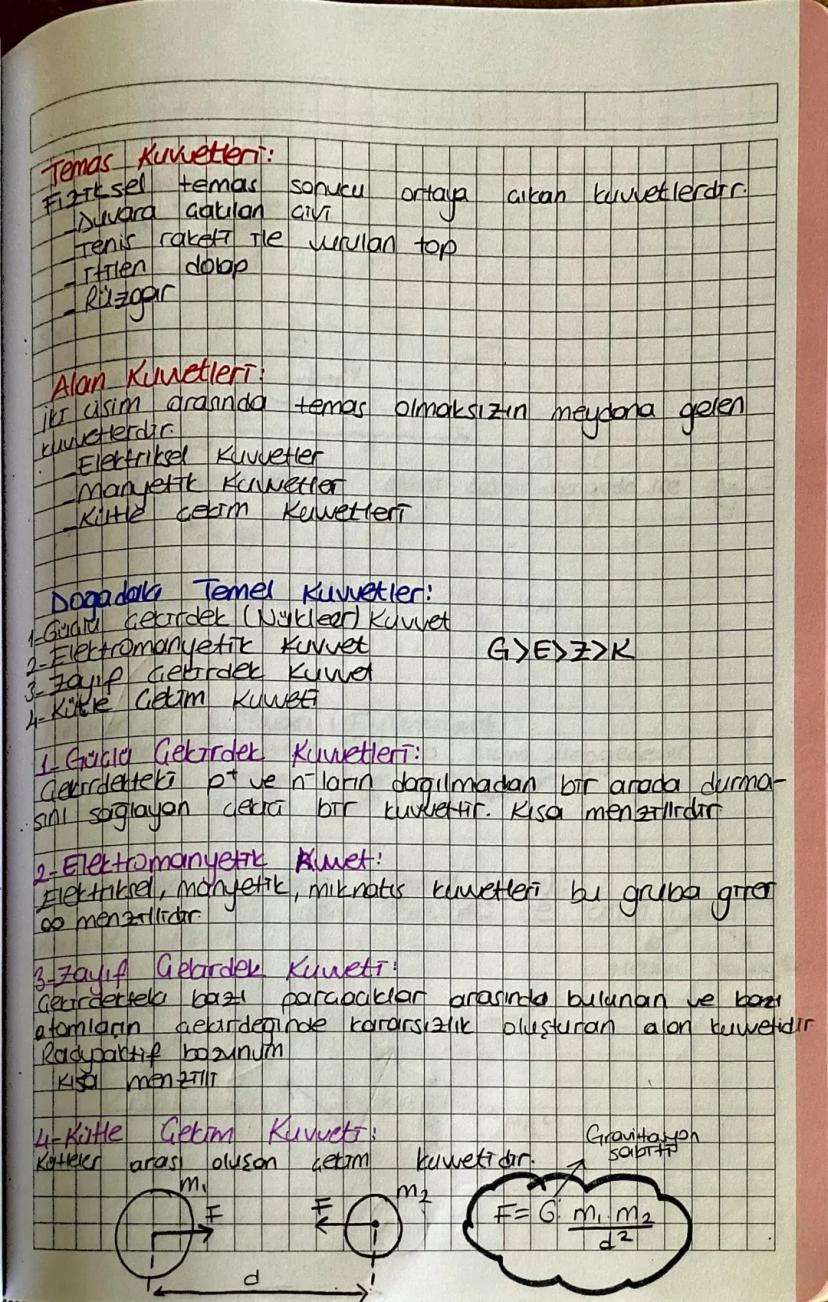 Temas Kuvvetleri:
Fiziksel temas sonucu ortaya çıkan kuvvetlerdir.
- Duvara çakılan çivi
- Tenis raketi ile vurulan top
- İtilen dolap
- Rüzgar
Alan Kuvvetleri:
iki cisim arasında temas olmaksızın meydana gelen
kuvvetlerdir.
- Elektriksel Kuvvetler
- Manyetik Kuvvetler
- Kütle çekim Kuvvetleri
Dogadaki Temel Kuvvetler:
1- Güçlü Çekirdek (Nükleer) Kuvvet
2- Elektromanyetik Kuvvet
G>E>Z>K
3- Zayıf Çekirdek Kuvvet
4- Kütle Çekim Kuvveti
1- Güçlü Çekirdek Kuvvetleri:
Çekirdekteki p⁺ ve n⁻ların dagılmadan bir arada durma-
sını sağlayan çekici bir kuvvettir. Kısa menzillidir.
2- Elektromanyetik Kuvvet:
Elektriksel, manyetik, mıknatıs kuvvetleri bu gruba girer
∞ menzillidir.
3- Zayıf Çekirdek Kuvveti:
Çekirdekteki bazı parçacıklar arasında bulunan ve bazı
atomların çekirdeginde kararsızlık oluşturan alan kuvvetidir
Radyoaktif bozunum
Kısa menzilli
4- Kütle Çekim Kuvveti:
Gravitasyon
sabiti
Kütleler arası oluşan çekim kuvvetidir.
m₁ F F m₂
F = G · m₁ · m₂ / d²
d